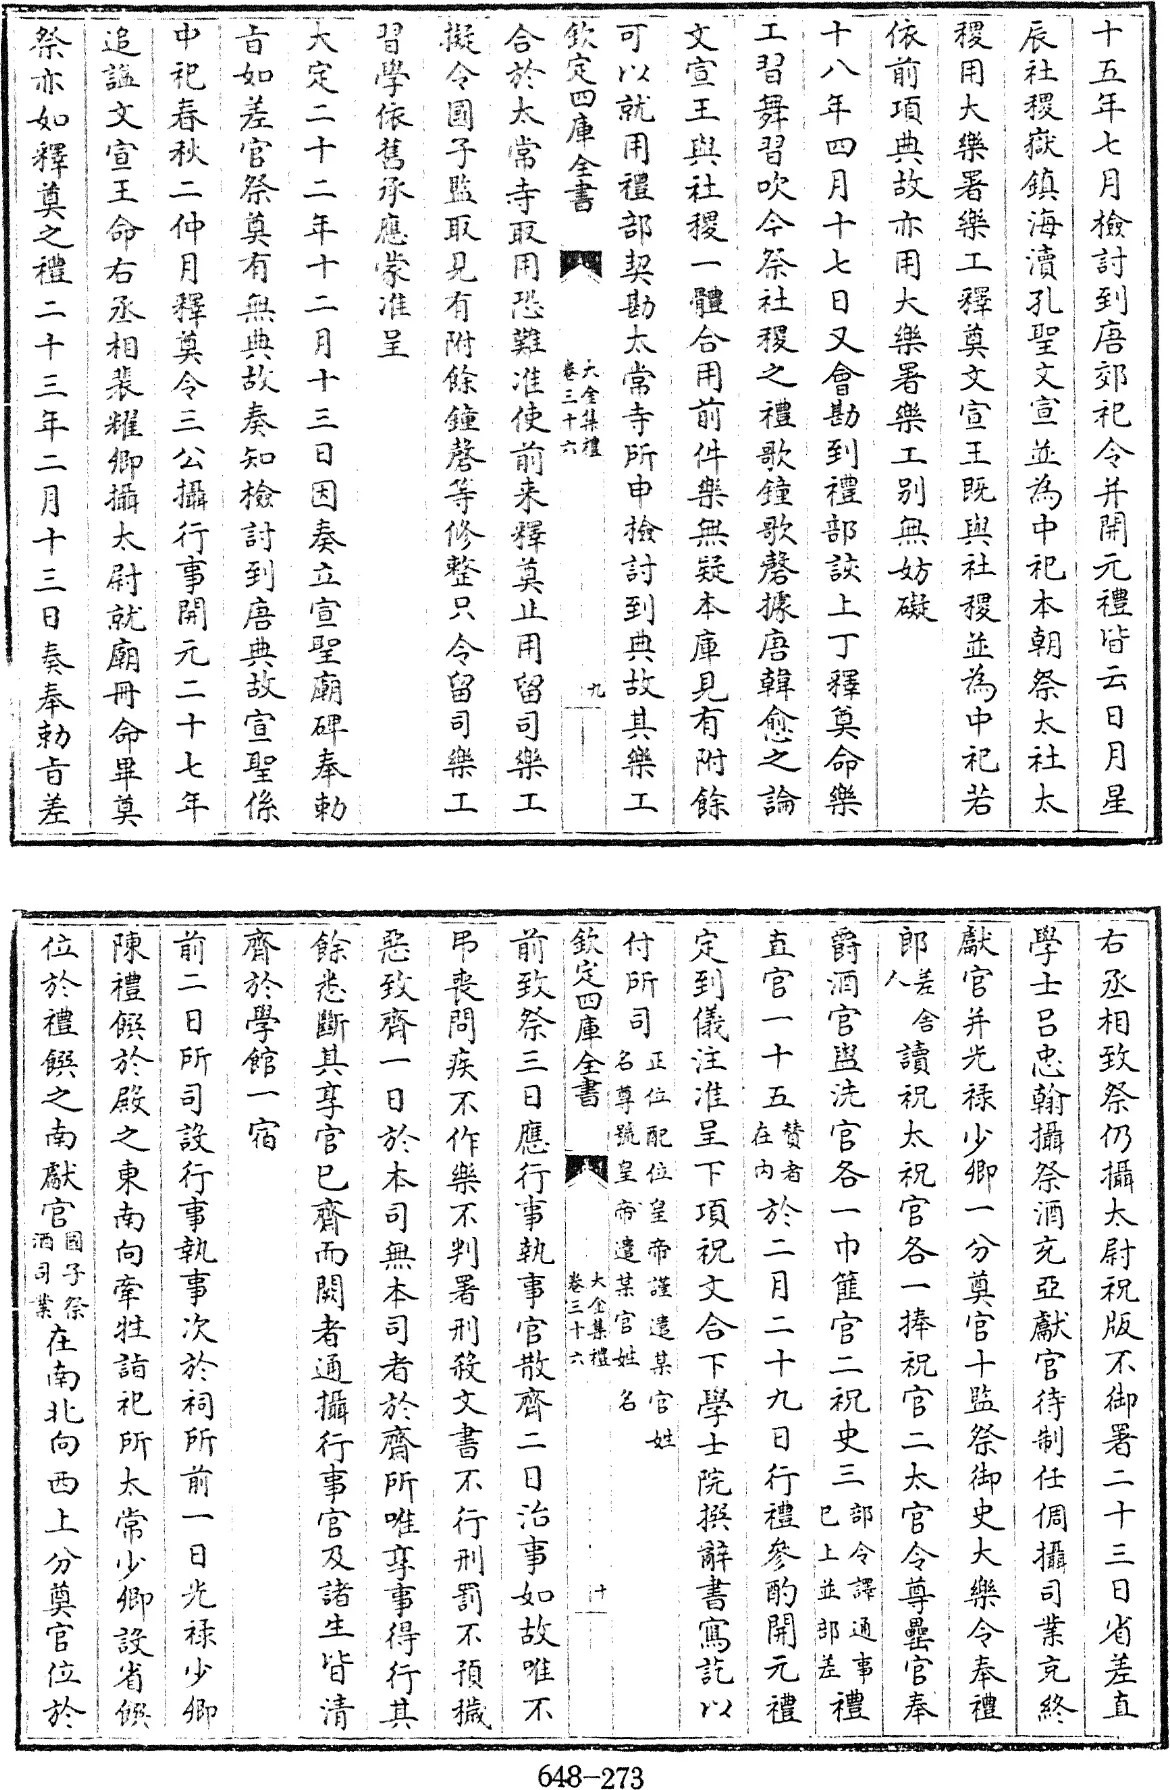 十五年七月檢討到唐郊祀令并開元禮皆云日月星
辰社稷嶽鎮海瀆孔聖文宣並為中祀本朝祭太社太
稷用大樂署樂工釋奠文宣王既與社稷並為中祀若
依前項典故亦用大樂署樂工别無妨礙
十八年四月十七日又會勘到禮部詼上丁釋奠命樂
工習舞習吹今祭社稷之禮歌鐘歌磬據唐韓愈之論
文宣王與社稷一體合用前件樂無疑本庫見有附餘
可以就用禮部契勘太常寺所申檢討到典故其樂工
欽定四庫全書
大金集禮
卷三十六
九
合於太常寺取用恐難准使前來釋奠止用留司樂工
擬令國子監取見有附餘鐘磬等修整只令留司樂工
習學依舊承應蒙准呈
大定二十二年十二月十三日因奏立宣聖廟碑奉勅
旨如差官祭奠有無典故奏知檢討到唐典故宣聖係
中祀春秋二仲月釋奠令三公攝行事開元二十七年
追謚文宣王命右丞相裴耀卿攝太尉就廟冊命畢奠
祭亦如釋奠之禮二十三年二月十三日奏奉勅旨差
右丞相致祭仍攝太尉祝版不御署二十三日省差直
學士呂忠翰攝祭酒充亞獻官待制任倜攝司業充終
獻官并光祿少卿一分奠官十監祭御史大樂令奉禮
郎差舍人讀祝太祝官各一捧祝官二太官令尊罍官奉
爵酒官盥洗官各一巾篚官二祝史三部令譯通事已上並部差禮
直官一十五贊者在內於二月二十九日行禮參酌開元禮
定到儀注准呈下項祝文合下學士院撰辭書寫訖以
付所司正位配位皇帝謹遣某官姓名尊號皇帝遣某官姓名
欽定四庫全書
大金集禮
卷三十六
十
前致祭三日應行事執事官散齊二日治事如故唯不
弔喪問疾不作樂不判署刑殺文書不行刑罰不預穢
惡致齊一日於本司無本司者於齊所唯享事得行其
餘悉斷其享官已齊而闕者通攝行事官及諸生皆清
齊於學館一宿
前二日所司設行事執事次於祠所前一日光祿少卿
陳禮饌於殿之東南向牽牲詣祀所太常少卿設省饌
位於禮饌之南獻官國子祭酒司業在南北向西上分奠官位於
648-273